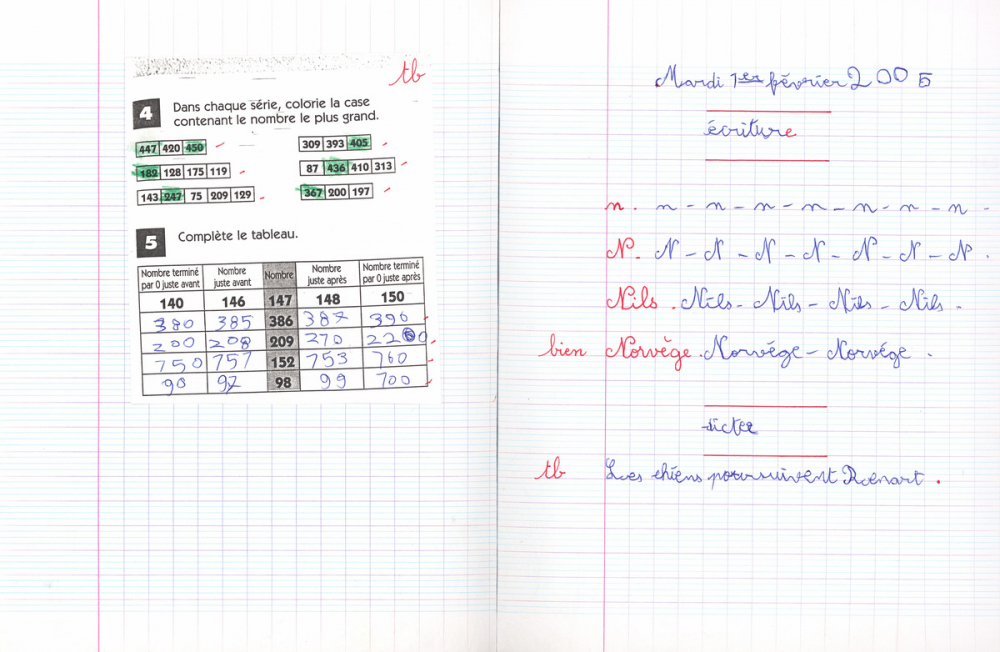 tb
4 Dans chaque série, colorie la case
contenant le nombre le plus grand.
447 420 450
309 393 405
182 128 175 119
87 436 410 313
143 247 75 209 129
367 200 197
5 Complète le tableau.
Nombre terminé par 0 juste avant Nombre juste avant Nombre Nombre juste après Nombre terminé par 0 juste après
140 146 147 148 150
380 385 386 387 390
200 208 209 210 220
150 151 152 153 160
90 97 98 99 100
Mardi 1er février 2005
écriture
n. n - n - n - n - n - n - n -
N. N - N - N - N - N - N - N .
Nils . Nils - Nils - Nils - Nils .
bien Norvège . Norvége - Norvége .
dictée
tb Les chiens poursuivent Renart .